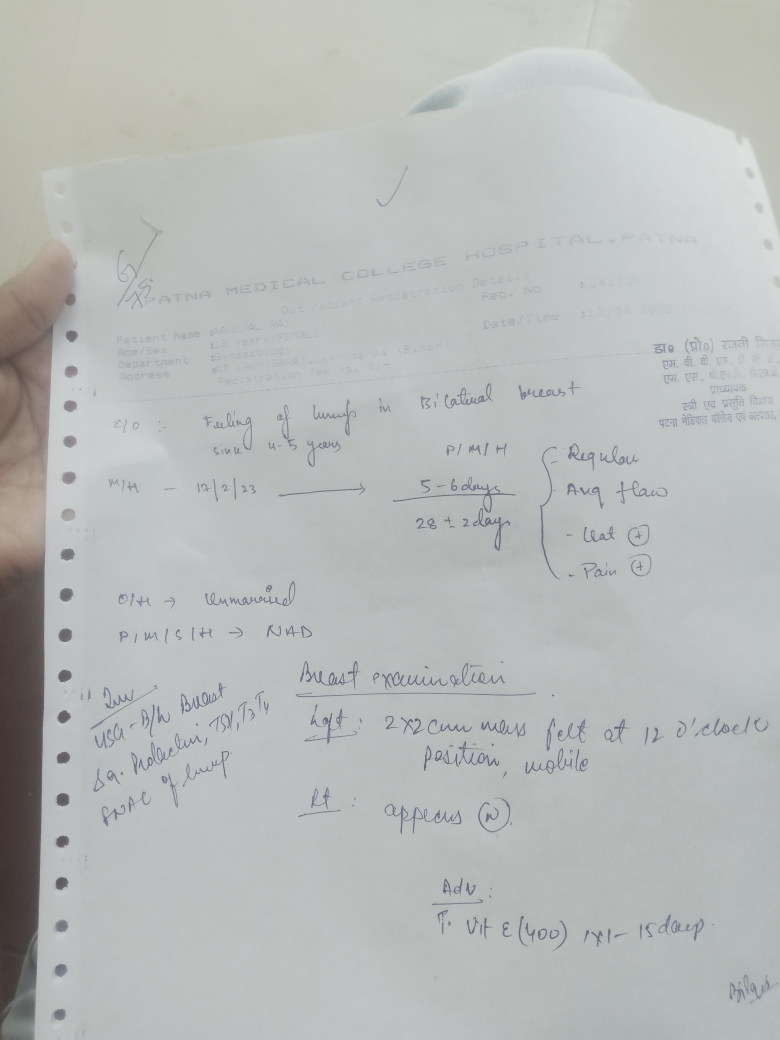 PATNA MEDICAL COLLEGE HOSPITAL, PATNA
Out Patient Registration Details
Reg. No
Patient Name
Date/Time
Age/Sex
Department : Gynaecology
Address
Registration Fee Rs.
डा० (प्रो०) रजनी
एम. बी. बी. एस.
एम. एस.
प्राध्यापक
स्त्री एवं प्रसूति विभाग
पटना मेडिकल कॉलेज एवं
C/O :- Feeling of lumps in Bilateral breast
since 4-5 years
M/H - 12/2/23
P/M/H
5-6 days
28 ± 2 days
- Regular
- Avg flow
- Clot +
- Pain +
O/H → Unmarried
P/M/S/H → NAD
Inv
USG - B/L Breast
Sr. Prolactin, TSH, T3 T4
FNAC of lump.
Breast examination
Left : 2x2 cm mass felt at 12 o'clock
position, mobile
Rt : appears N.
Adv :
T. Vit E (400) 1x1 - 15 days.